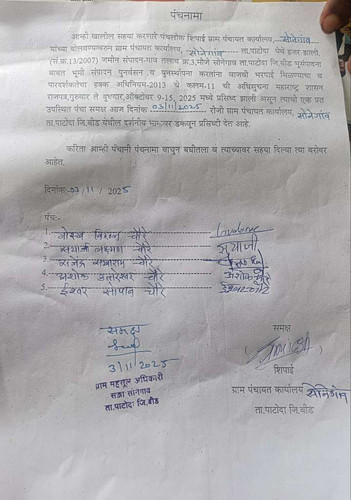 पंचनामा
आम्ही खालील सह्या करणारे पंचलोक शिपाई ग्राम पंचायत कार्यालय, सोनेगांव
यांच्या बोलवण्यावरुन ग्राम पंचायत कार्यालय, सोनेगाव ता.पाटोदा येथे हजर झालो.
(सं.क्र.13/2007) जमीन संपादन-गाव तलाव क्र.3,मौजे सोनेगाव ता.पाटोदा जि.बीड भूसंपादना
बाबत भूमी संपादन पुनर्वसन व पुनर्स्थापना करतांना वाजवी भरपाई मिळण्याचा व
पारदर्शकतेचा हक्क अधिनियम-2013 चे कलम-11 ची अधिसुचना महाराष्ट्र शासन
राजपत्र,गुरुवार ते बुधवार,ऑक्टोंबर 9-15, 2025 मध्ये प्रसिध्द झाली असून त्याची एक प्रत
उपस्थित पंच समक्ष आज दिनांक 03/11/2025 रोजी ग्राम पंचायत कार्यालय, सोनेगांव
ता.पाटोदा जि.बीड येथील दर्शनीय भागावर डकवून प्रसिध्दी देत आहे.
करिता आम्ही पंचानी पंचनामा वाचून बघीतला व त्याच्यावर सहया दिल्या त्या बरोबर
आहेत.
दिनांक:-03/11/2025
पंच:-
1. चौरे
2. चौरे
3. चौरे
4. अशोक चौरे अशोक चौरे
5. ईश्वर सोपान चौरे
समक्ष
समक्ष
3/11/2025
शिपाई
ग्राम महसूल अधिकारी
सज्जा सोनेगांव
ता.पाटोदा जि.बीड
ग्राम पंचायत कार्यालय सोनेगांव
ता.पाटोदा जि.बीड